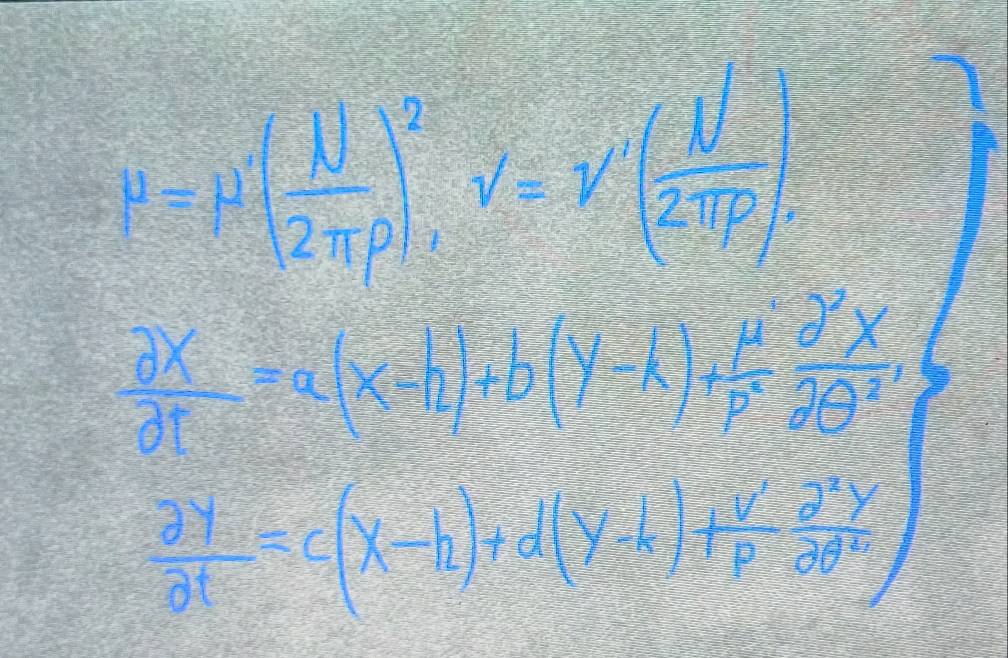 μ = μ' (N / 2πρ)², ν = ν' (N / 2πρ).
∂X/∂t = a(X−h) + b(Y−k) + μ'/ρ² ∂²X/∂θ²,
∂Y/∂t = c(X−h) + d(Y−k) + ν'/ρ ∂²Y/∂θ², }